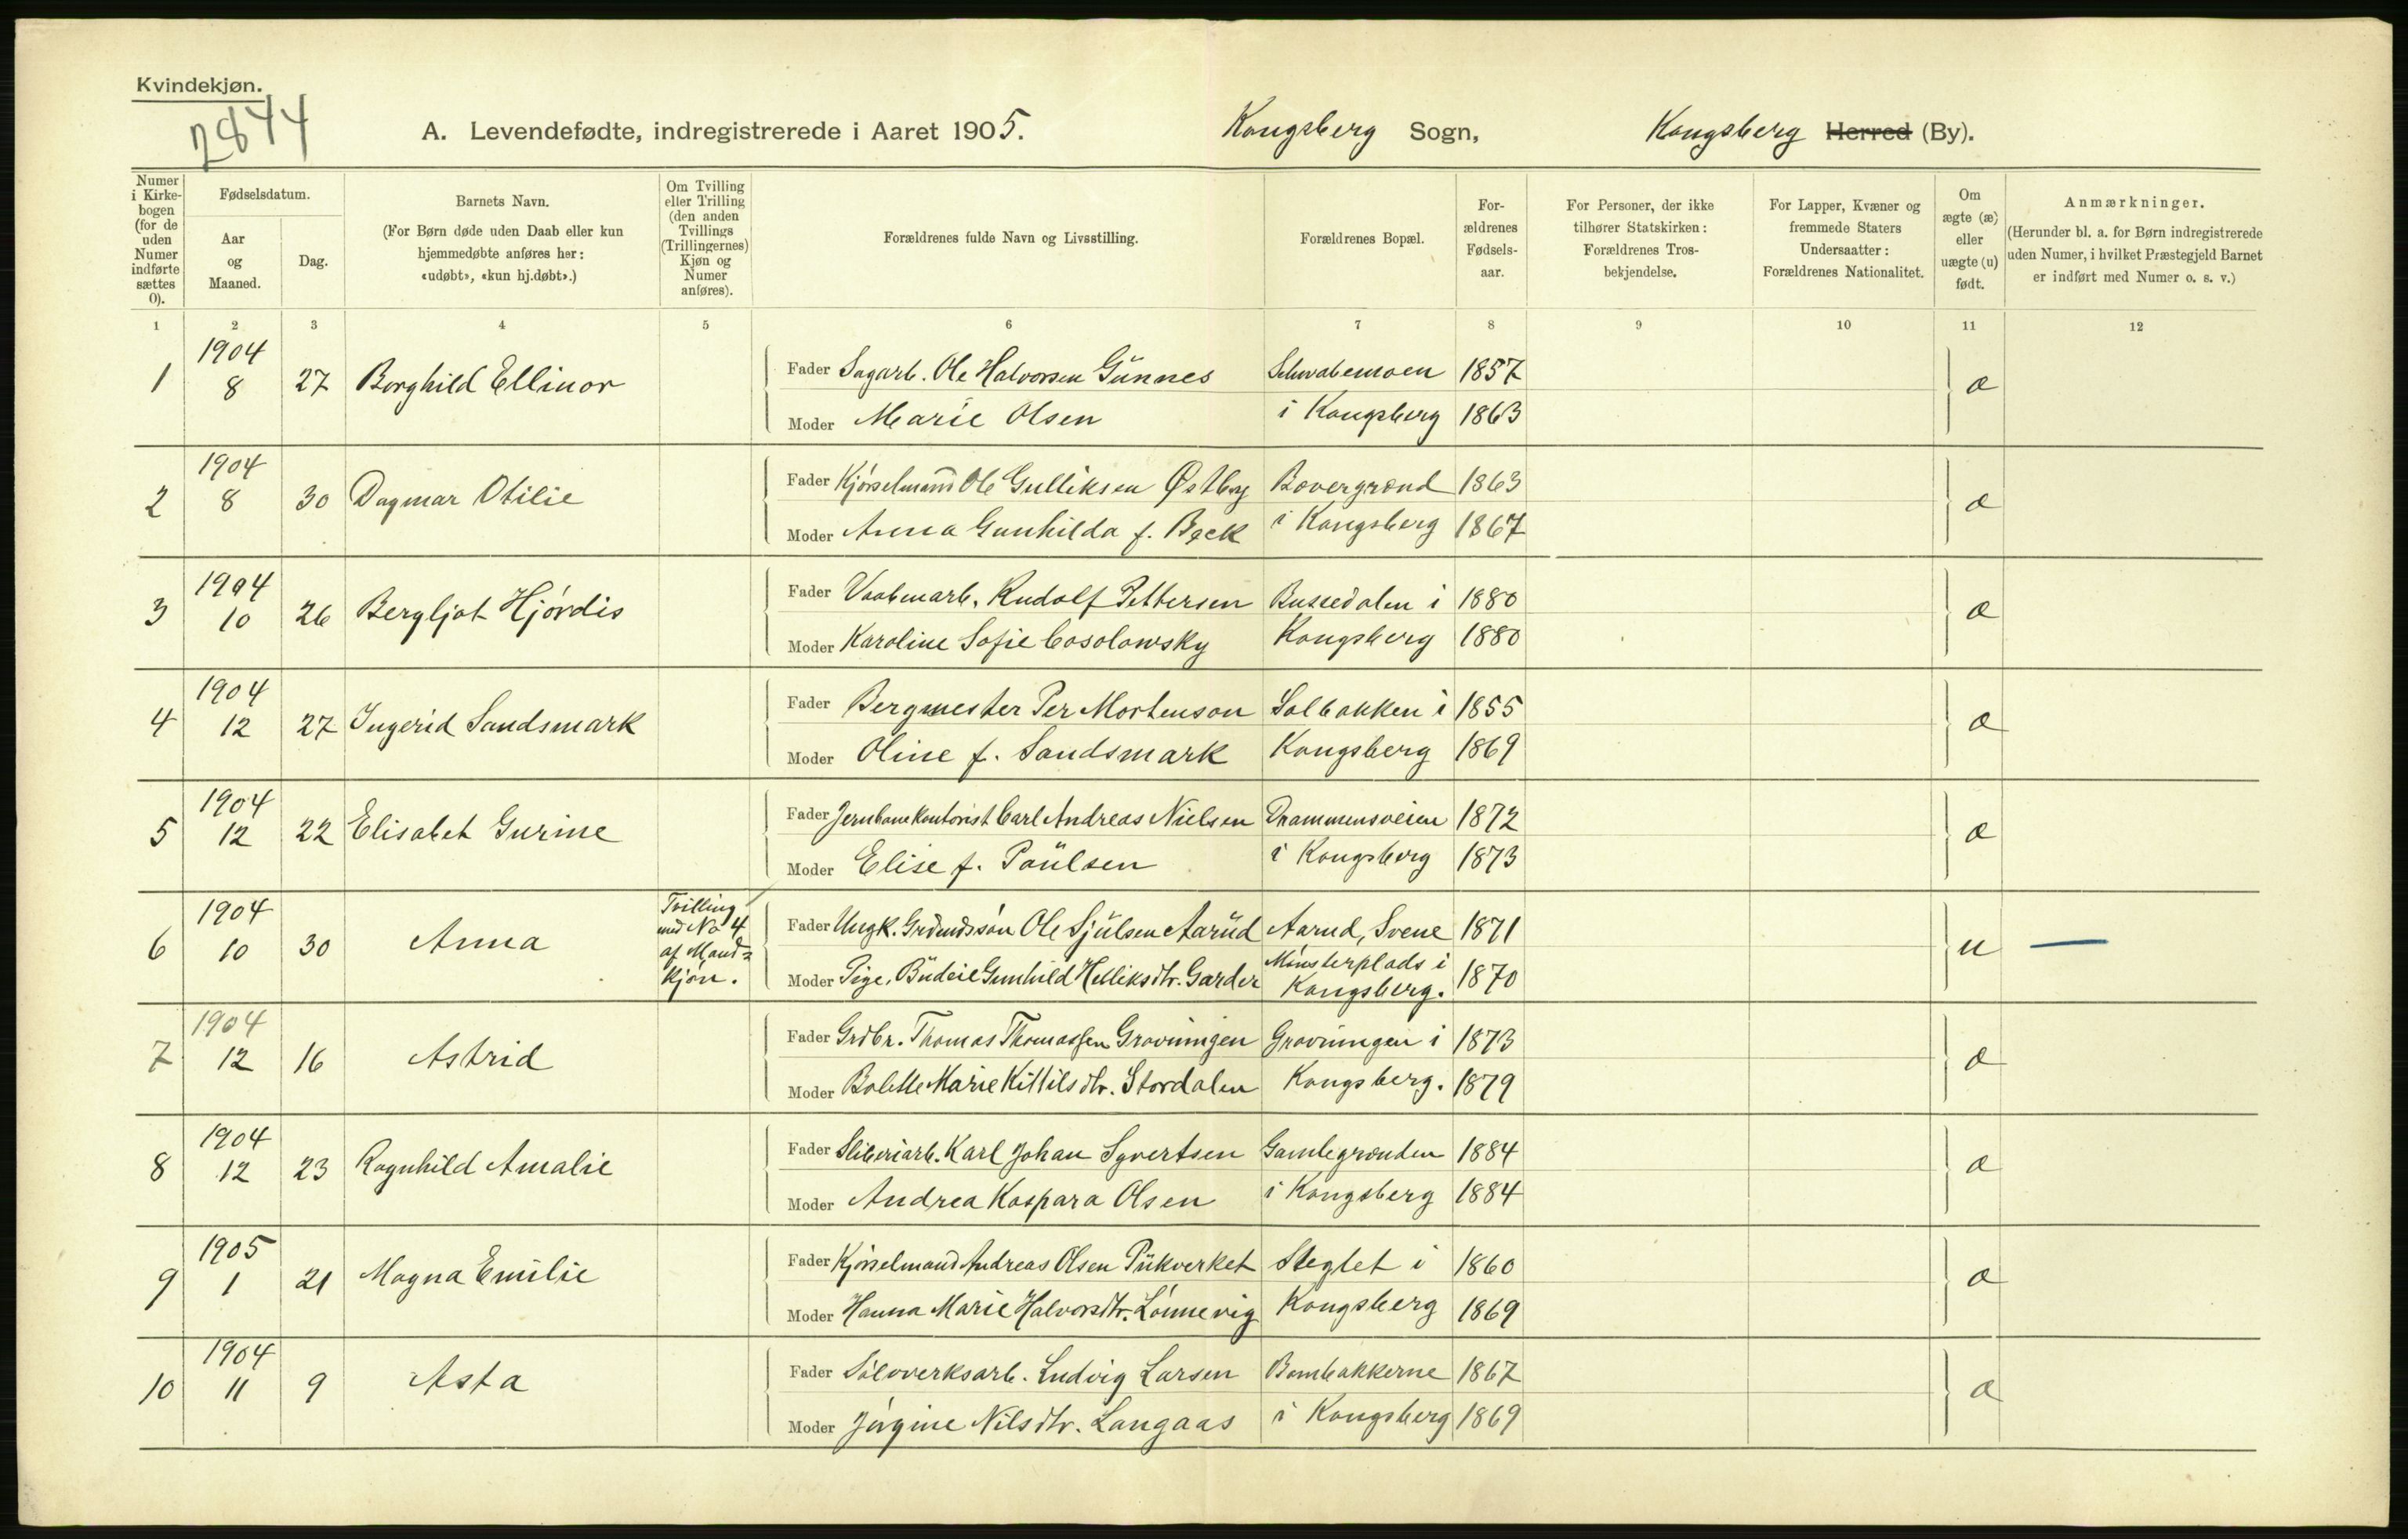 Kvindekjøn.
2844
A. Levendefødte, indregistrerede i Aaret 1905. Kongsberg Sogn, Kongsberg Herred (By).
Numer i Kirkebogen (for de uden Numer indførte sættes 0).
Fødselsdatum.
Aar og Maaned.
Dag.
Barnets Navn.
(For Børn døde uden Daab eller kun hjemmedøbte anføres her: «udøbt», «kun hj.døbt».)
Om Tvilling eller Trilling (den anden Tvillings (Trillingernes) Kjøn og Numer anføres).
Forældrenes fulde Navn og Livsstilling.
Forældrenes Bopæl.
Forældrenes Fødselsaar.
For Personer, der ikke tilhører Statskirken: Forældrenes Trosbekjendelse.
For Lapper, Kvæner og fremmede Staters Undersaatter: Forældrenes Nationalitet.
Om ægte (æ) eller uægte (u) født.
Anmærkninger.
(Herunder bl. a. for Børn indregistrerede uden Numer, i hvilket Præstegjeld Barnet er indført med Numer o. s. v.)
1 2 3 4 5 6 7 8 9 10 11 12
1904
1 8 27 Borghild Ellinor Fader Sagarb. Ole Halvorsen Gunnes Schwabemoen 1857 æ
Moder Marie Olsen i Kongsberg 1863
1904
2 8 30 Dagmar Otilie Fader Kjørselmand Ole Gulliksen Østbrg Bovergrænd 1863 æ
Moder Anna Gunhilda f. Beck i Kongsberg 1867
1904
3 10 26 Bergljot Hjørdis Fader Vaabenarb. Rudolf Pettersen Bussedalen i 1880 æ
Moder Karoline Sofie Cosolowsky Kongsberg 1880
1904
4 12 27 Ingerid Sandsmark Fader Bergmester Per Mortenson Solbakken i 1855 æ
Moder Oline f. Sandsmark Kongsberg 1869
1904
5 12 22 Elisabet Gurine Fader Jernbanekontorist Carl Andreas Nielsen Drammensveien 1872 æ
Moder Elise f. Paulsen i Kongsberg 1873
1904
6 10 30 Anna Tvilling med No 4 af Mandkjøn. Fader Ungk. Grdmdssøn Ole Sjulsen Aarud Aarud, Svene 1871 u —
Moder Pige, Budeie Gunhild Helliksdtr. Garder Mønsterplads i Kongsberg. 1870
1904
7 12 16 Astrid Fader Grdbr. Thomas Thomassen Gravningen Gravningen i 1873 æ
Moder Bolette Marie Kittilsdtr. Stordalen Kongsberg. 1879
1904
8 12 23 Ragnhild Amalie Fader Sliberiarb. Karl Johan Syvertsen Gamlegrænden 1884 æ
Moder Andrea Kaspara Olsen i Kongsberg 1884
1905
9 1 21 Magna Emilie Fader Kjørselmand Andreas Olsen Pukverket Steglet i 1860 æ
Moder Hanna Marie Halvorsdtr. Lønnevig Kongsberg 1869
1904
10 11 9 Asta Fader Sølvverksarb. Ludvig Larsen Bombakkerne 1867 æ
Moder Jørgine Nilsdtr. Langaas i Kongsberg 1869